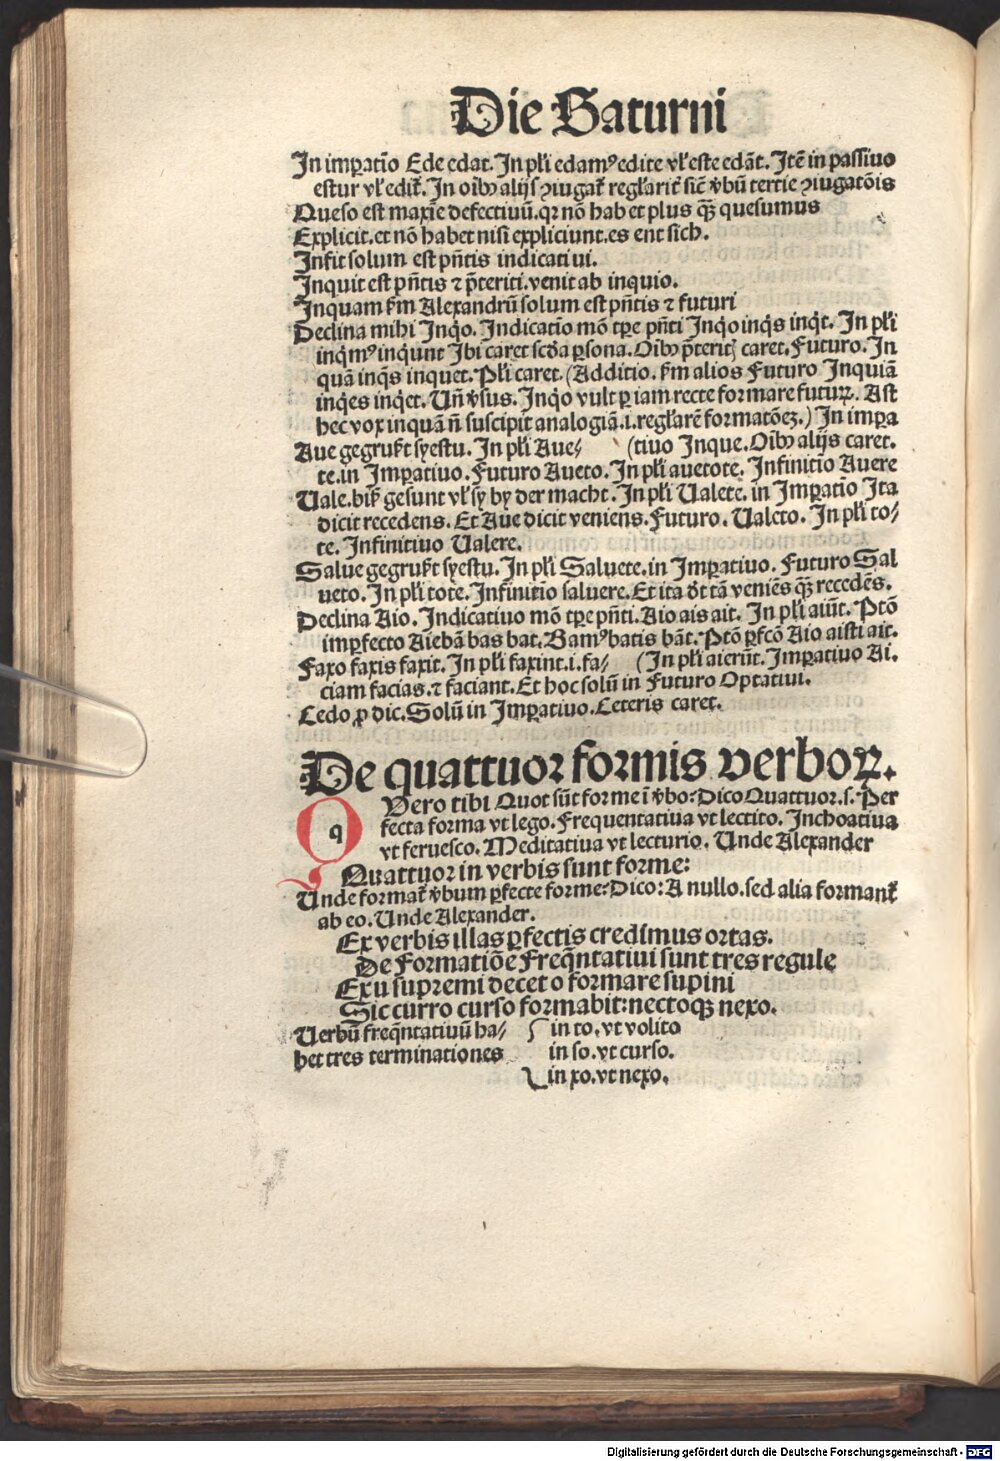 Die Saturni
In imꝑatiō Ede edat. In pl̄i edamꝰ edite vl̓ este edāt. Itē in passiuo
estur vl̓ edit̄. In oībꝫ alijs ꝯiugat̄ regl̓arit̄ sic̄ v̄bū tertie ꝯiugatōis
Queso est maxīe defectiuū. qꝛ nō habet plus qꝫ̄ quesumus
Explicit. et nō habet nisi expliciunt. es ent sich.
Infit solum est pn̄tis indicatiui.
Inquit est pn̄tis ⁊ p̄teriti. venit ab inquio.
Inquam s̄m Alexandrū solum est pn̄tis ⁊ futuri
Declina mihi Inq̄o. Indicatiō mō tꝑe pn̄ti Inq̄o inq̄s inq̄t. In pl̄i
inq̄mꝰ inqunt Ibi caret scd̄a ꝑsona. Oībꝫ p̄teritꝭ caret. Futuro. In
quā inq̄s inquet. Pl̄i caret. (Additio. s̄m alios Futuro Inquiā
inq̄es inq̄et. Un̄ v̄sus. Inq̄o vult ꝑ iam recte formare futuꝝ. Ast
hec vox inquā n̄ suscipit analogiā .i. regl̓arē formatōeꝫ.) In imꝑa
Aue gegrus̄t syestu. In pl̄i Aue⸗ (tiuo Inque. Oībꝫ alijs caret.
te. in Imꝑatiuo. Futuro Aueto. In pl̄i auetote. Infinitio Auere
Uale. bis̄ gesunt vl̓ sy by der macht. In pl̄i Ualete. in Imꝑatiō Ita
dicit recedens. Et Aue dicit veniens. Futuro. Ualeto. In pl̄i to⸗
te. Infinitiuo Ualere.
Salue gegrus̄t syestu. In pl̄i Saluete. in Imꝑatiuo. Futuro Sal
ueto. In pl̄i tote. Infinitio saluere. Et ita d̄t tā veniēs qꝫ̄ recedēs.
Declina Aio. Indicatiuo mō tꝑe pn̄ti. Aio ais ait. In pl̄i aiūt. Ptō
imꝑfecto Aiebā bas bat. Bamꝰ batis bāt. Ptō ꝑfcō Aio aisti ait.
Faxo faxis faxit. In pl̄i faxint .i. fa⸗ (In pl̄i aierūt. Imꝑatiuo Ai.
ciam facias. ⁊ faciant. Et hoc solū in Futuro Optatiui.
Cedo ꝓ dic. Solū in Imꝑatiuo. Ceteris caret.
De quattuor formis verboꝝ.
q Vero tibi Quot sūt forme ī v̄bo: Dico Quattuor. s. Per
fecta forma vt lego. Frequentatiua vt lectito. Inchoatiua
vt feruesco. Meditatiua vt lecturio. Unde Alexander
Quattuor in verbis sunt forme:
Unde format̄ v̄bum ꝑfecte forme: Dico: A nullo. sed alia formant̄
ab eo. Unde Alexander.
Ex verbis illas ꝑfectis credimus ortas.
De Formatiōe Freq̄ntatiui sunt tres regule
Ex u supremi decet o formare supini
Sic curro curso formabit: nectoqꝫ nexo.
Uerbū freq̄ntatiuū ha⸗ in to. vt volito
bet tres terminationes in so. vt curso.
in xo. vt nexo.
Digitalisierung gefördert durch die Deutsche Forschungsgemeinschaft - DFG